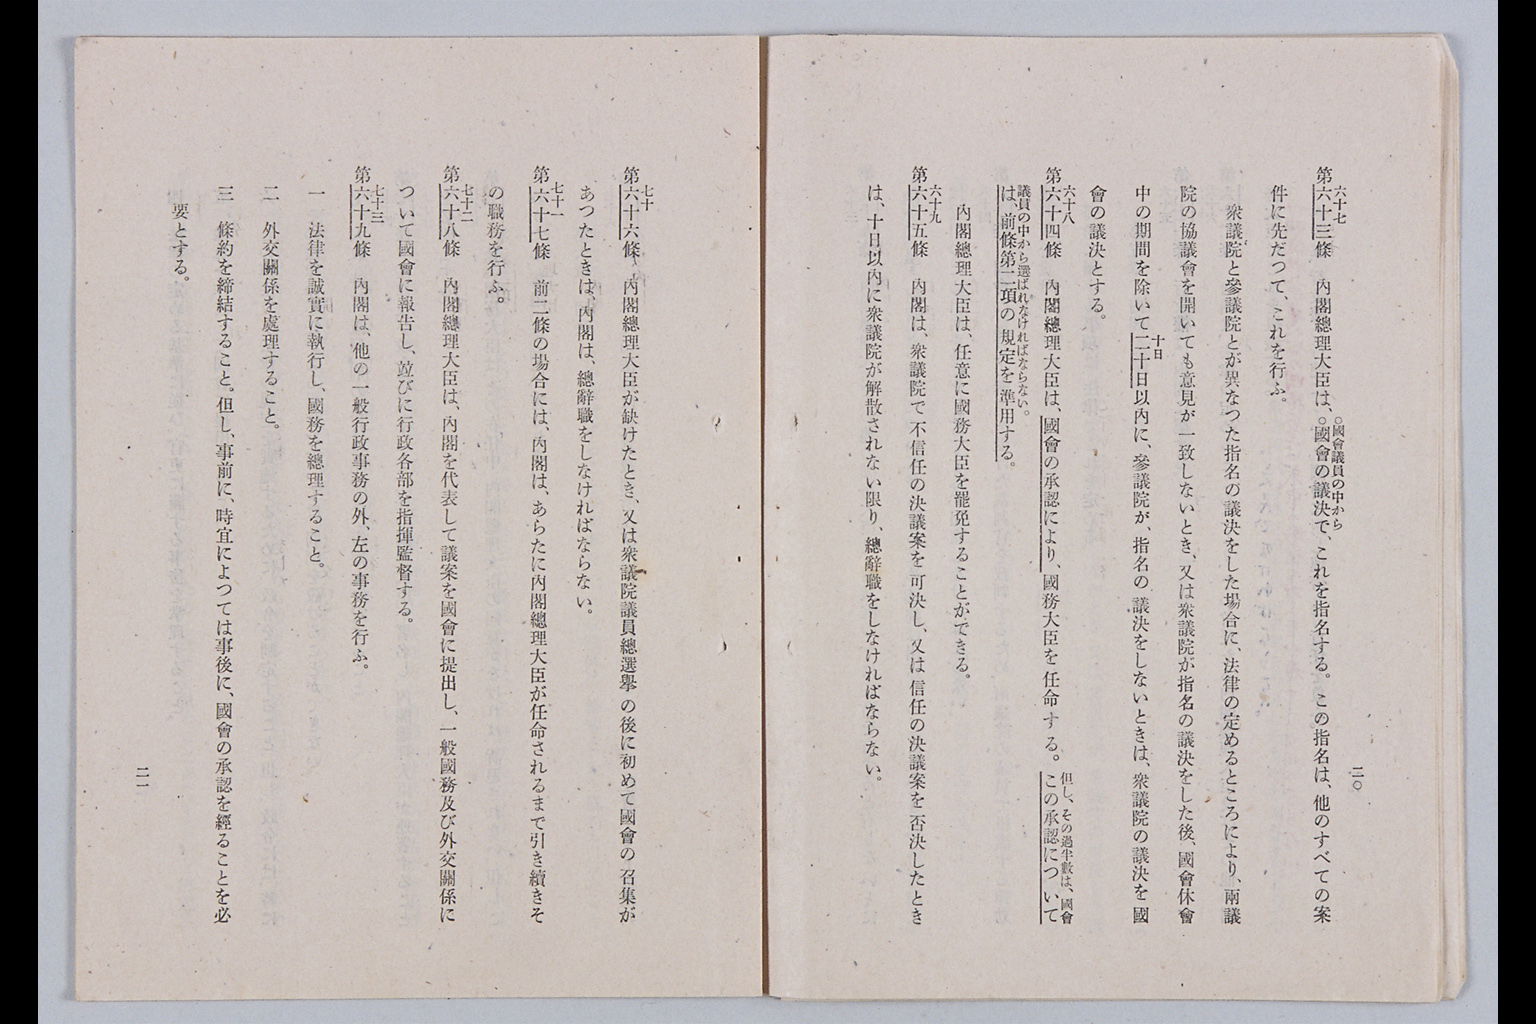 二〇
六十七
第六十三條　內閣總理大臣は、○國會の議決で、これを指名する。この指名は、他のすべての案
○國會議員の中から
件に先だつて、これを行ふ。
衆議院と參議院とが異なつた指名の議決をした場合に、法律の定めるところにより、兩議
院の協議會を開いても意見が一致しないとき、又は衆議院が指名の議決をした後、國會休會
中の期間を除いて二十日以內に、參議院が、指名の議決をしないときは、衆議院の議決を國
十日
會の議決とする。
六十八
第六十四條　內閣總理大臣は、國會の承認により、國務大臣を任命する。この承認について
但し、その過半數は、國會
は、前條第二項の規定を準用する。
議員の中から選ばれなければならない。
內閣總理大臣は、任意に國務大臣を罷免することができる。
六十九
第六十五條　內閣は、衆議院で不信任の決議案を可決し、又は信任の決議案を否決したとき
は、十日以內に衆議院が解散されない限り、總辭職をしなければならない。
七十
第六十六條　內閣總理大臣が缺けたとき、又は衆議院議員總選擧の後に初めて國會の召集が
あつたときは、內閣は、總辭職をしなければならない。
七十一
第六十七條　前二條の場合には、內閣は、あらたに內閣總理大臣が任命されるまで引き續きそ
の職務を行ふ。
七十二
第六十八條　內閣總理大臣は、內閣を代表して議案を國會に提出し、一般國務及び外交關係に
ついて國會に報告し、竝びに行政各部を指揮監督する。
七十三
第六十九條　內閣は、他の一般行政事務の外、左の事務を行ふ。
一　法律を誠實に執行し、國務を總理すること。
二　外交關係を處理すること。
三　條約を締結すること。但し、事前に、時宜によつては事後に、國會の承認を經ることを必
要とする。
二一